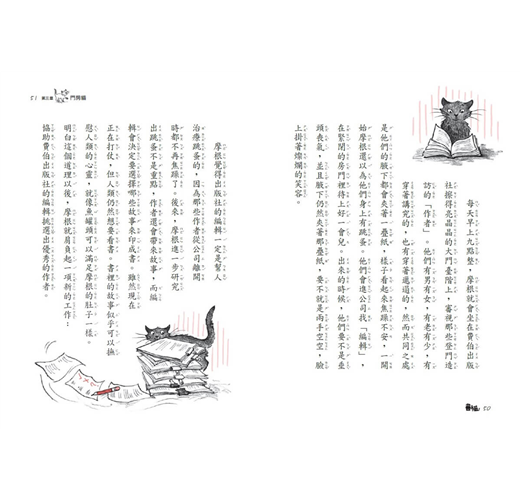 每天早上九點整，摩根就會坐在費伯出版
社擦得亮晶晶的大門臺階上，審視那些登門造
訪的「作者」。他們有男有女，有老有少，有
穿著講究的，也有穿著邋遢的，然而共同之處
是他們的腋下都會夾著一疊紙，樣子看起來焦躁不安，一開
始摩根還以為他們身上有跳蚤。他們會進公司找「編輯」，
在緊閉的房門裡待上好一會兒。出來的時候，他們要不是垂
頭喪氣，並且腋下仍然夾著那疊紙，要不就是兩手空空，臉
上掛著燦爛的笑容。
50
摩根覺得出版社的編輯一定是幫人
治療跳蚤的，因為那些作者從公司離開
時都不再焦躁了。後來，摩根進一步研究
出跳蚤不是重點，作者還會帶來故事，而編
輯會決定要選擇哪些故事來印成書。雖然現在
正在打仗，但人類仍然想要看書。書裡的故事似乎可以撫
慰人類的心靈，就像魚罐頭可以滿足摩根的肚子一樣。
明白這個道理以後，摩根就肩負起一項新的工作：
協助費伯出版社的編輯挑選出優秀的作者。
51 第三章 門房貓